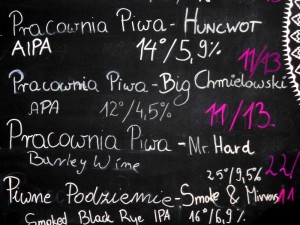 Pracownia Piwa - Huncwot
AIPA 14°/5,9% 11/13
Pracownia Piwa - Big Chmielowski
APA 12°/4,5% 11/13.
Pracownia Piwa - Mr. Hard
Barley Wine 22/
25°/9,5%
Piwne Podziemie - Smoke & Mirrors 11
Smoked Black Rye IPA 16°/6,9%